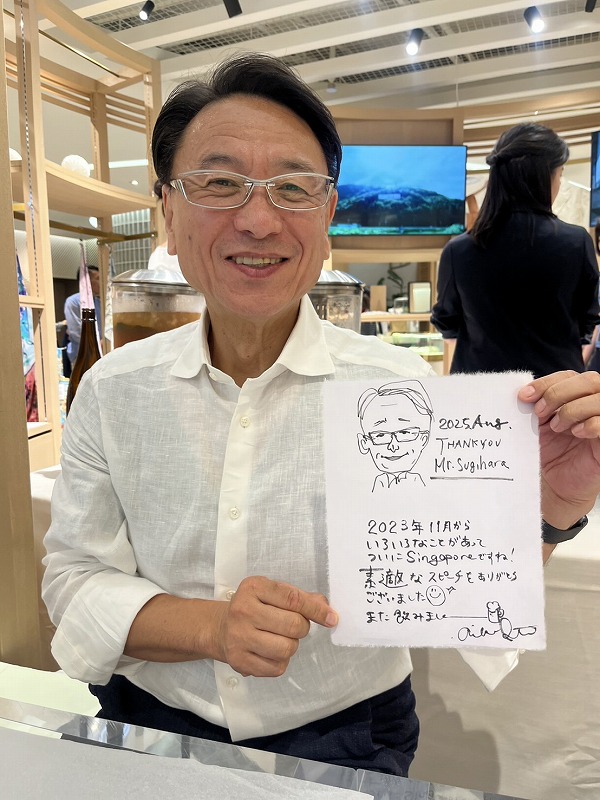 2025, Aug.
THANKYOU
Mr. Sugihara
2023年11月から
いろいろなことがあって
ついにSingaporeですね!
素適なスピーチをありがとう
ございました
また飲みましょ